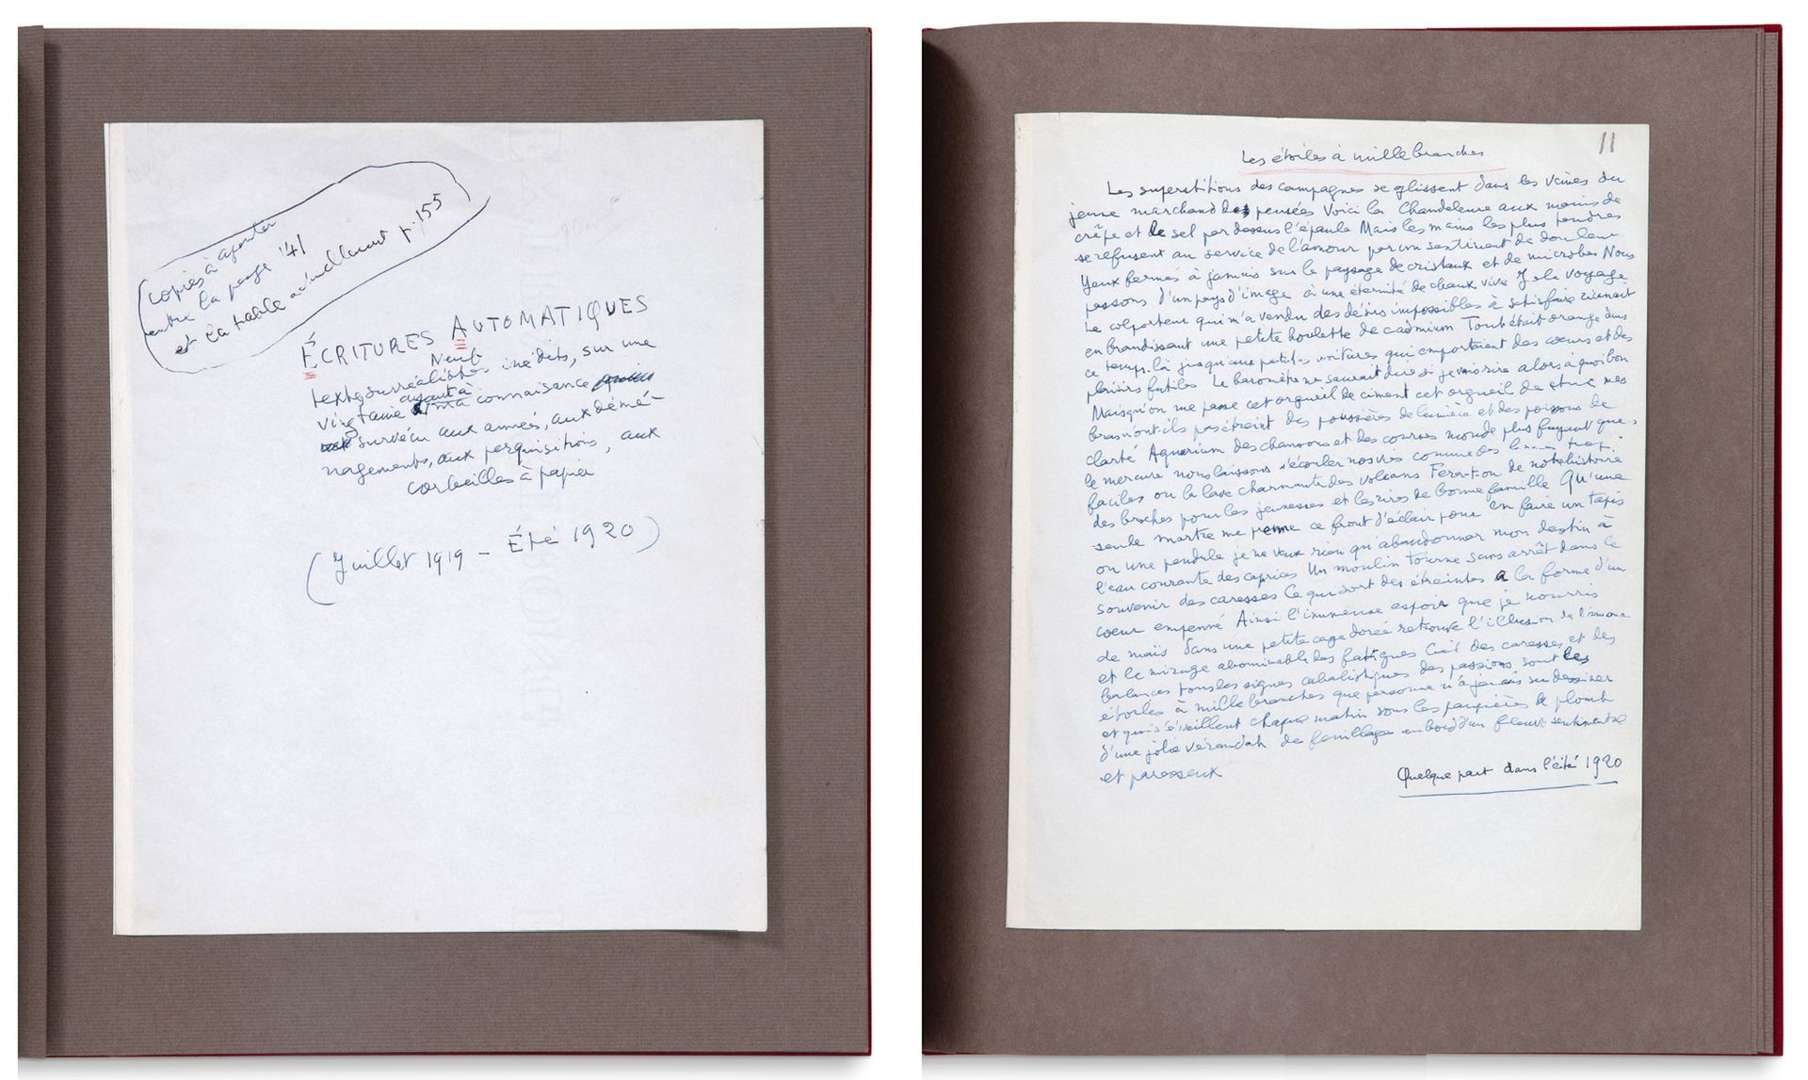 copies à ajouter
entre la page 141
et la table actuellement p. 155
ÉCRITURES AUTOMATIQUES
Neuf
textes surréalistes inédits, sur une
vingtaine ayant à ma connaissance
survécu aux années, aux démé-
nagements, aux perquisitions, aux
corbeilles à papier
(Juillet 1919 – Été 1920)
11
Les étoiles à mille branches
Les superstitions des campagnes se glissent dans les veines du
jeune marchand de pensées Voici la Chandeleur aux mains de
crêpe et le sel par dessus l'épaule Mais les mains les plus tendres
se refusent au service de l'amour par un sentiment de douleur
Yeux fermés à jamais sur le paysage de cristaux et de microbes Nous
passons d'un pays d'image à une éternité de chaux vive Et le voyage
Le colporteur qui m'a vendu des désirs impossibles à satisfaire
en brandissant une petite houlette de cadmium Tout était orange dans
ce temps-là jusqu'aux petites voitures qui emportaient des cœurs et des
plaisirs futiles Le baromètre ne saurait dire si je vais rire alors à quoi bon
Mais qu'on me passe cet orgueil de ciment cet orgueil de stuc mes
bras n'ont-ils pas étreint des poussières de lumière et des poissons de
clarté Aquarium des chansons et des courses monde plus fuyant que
le mercure nous laissons s'écouler nos vies comme des trop
faciles ou la lave charmante des volcans Fera-t-on de notre histoire
des broches pour les jeunesses et les rires de bonne famille Qu'une
seule martre me prenne ce front d'éclair pour en faire un tapis
ou une pendule je ne veux rien qu'abandonner mon destin à
l'eau courante des caprices Un moulin tourne sans arrêt dans le
souvenir des caresses Ce qui sort des étreintes a la forme d'un
cœur empenné Ainsi l'immense espoir que je nourris
de maïs dans une petite cage dorée retrouve l'illusion de l'amour
et le mirage abominable des fatigues Ciel des caresses et des
balances tous les signes cabalistiques des passions sont les
étoiles à mille branches que personne n'a jamais su dessiner
et qui s'éveillent chaque matin sous les paupières de plomb
d'une jolie vérandah de feuillages au bord d'un fleuve sentimental
et paresseux
Quelque part dans l'été 1920